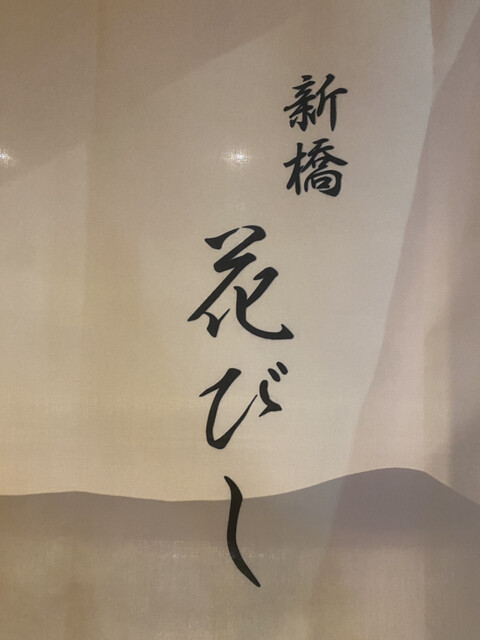 新橋
花びし